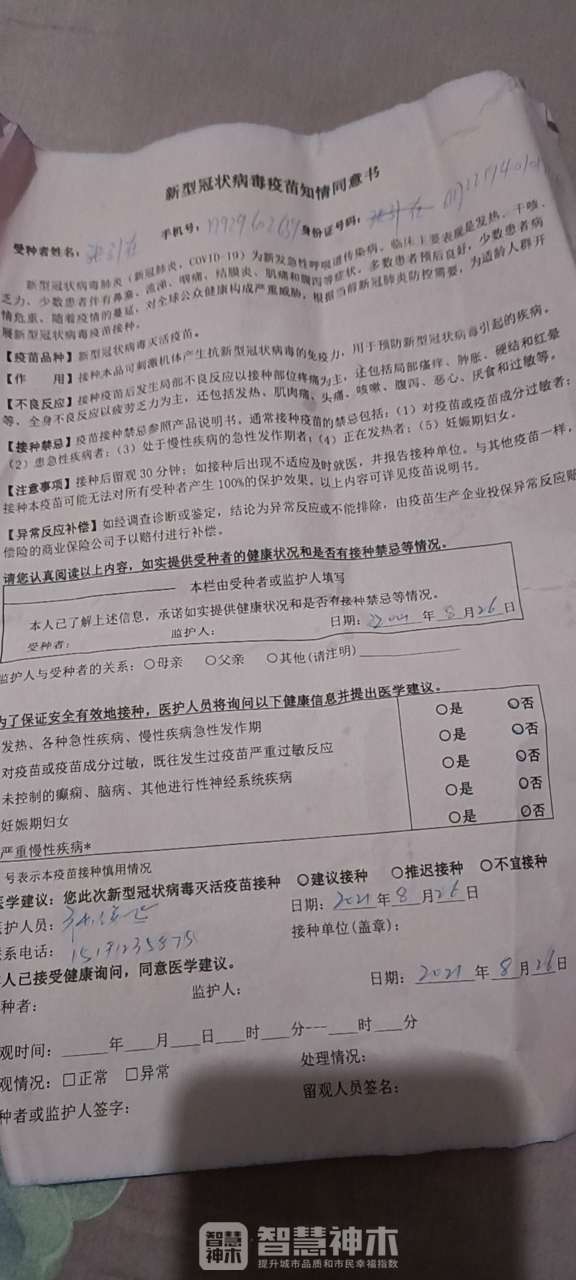 新型冠状病毒疫苗知情同意书
受种者姓名: 手机号: 身份证号码:
新型冠状病毒肺炎(新冠肺炎,COVID-19)为新发急性呼吸道传染病。临床主要表现是发热、干咳、
乏力,少数患者伴有鼻塞、流涕、咽痛、结膜炎、肌痛和腹泻等症状。多数患者预后良好,少数患者病
情危重。随着疫情的蔓延,对全球公众健康构成严重威胁,根据当前新冠肺炎防控需要,为适龄人群开
展新型冠状病毒疫苗接种。
【疫苗品种】新型冠状病毒灭活疫苗。
【作 用】接种本品可刺激机体产生抗新型冠状病毒的免疫力,用于预防新型冠状病毒引起的疾病。
【不良反应】接种疫苗后发生局部不良反应以接种部位疼痛为主,还包括局部瘙痒、肿胀、硬结和红晕
等,全身不良反应以疲劳乏力为主,还包括发热、肌肉痛、头痛、咳嗽、腹泻、恶心、厌食和过敏等。
【接种禁忌】疫苗接种禁忌参照产品说明书。通常接种疫苗的禁忌包括:(1)对疫苗或疫苗成分过敏者;
(2)患急性疾病者;(3)处于慢性疾病的急性发作期者;(4)正在发热者;(5)妊娠期妇女。
【注意事项】接种后留观30分钟;如接种后出现不适应及时就医,并报告接种单位。与其他疫苗一样,
接种本疫苗可能无法对所有受种者产生100%的保护效果。以上内容可详见疫苗说明书。
【异常反应补偿】如经调查诊断或鉴定,结论为异常反应或不能排除,由疫苗生产企业投保异常反应赔
偿险的商业保险公司予以赔付进行补偿。
请您认真阅读以上内容,如实提供受种者的健康状况和是否有接种禁忌等情况。
本栏由受种者或监护人填写
本人已了解上述信息,承诺如实提供健康状况和是否有接种禁忌等情况。
受种者: 监护人: 日期: 年 8 月 26 日
监护人与受种者的关系:○母亲 ○父亲 ○其他(请注明)
为了保证安全有效地接种,医护人员将询问以下健康信息并提出医学建议。
发热、各种急性疾病、慢性疾病急性发作期 ○是 ○否
对疫苗或疫苗成分过敏,既往发生过疫苗严重过敏反应 ○是 ○否
未控制的癫痫、脑病、其他进行性神经系统疾病 ○是 ○否
妊娠期妇女 ○是 ○否
严重慢性疾病* ○是 ○否
号表示本疫苗接种慎用情况
医学建议:您此次新型冠状病毒灭活疫苗接种 ○建议接种 ○推迟接种 ○不宜接种
医护人员: 日期:2021 年 8 月 26 日
联系电话: 接种单位(盖章):
本人已接受健康询问,同意医学建议。
种者: 监护人: 日期:2021 年 8 月 26 日
观时间: 年 月 日 时 分--- 时 分
观情况:□正常 □异常 处理情况:
种者或监护人签字: 留观人员签名:
智慧神木 智慧神木
提升城市品质和市民幸福指数